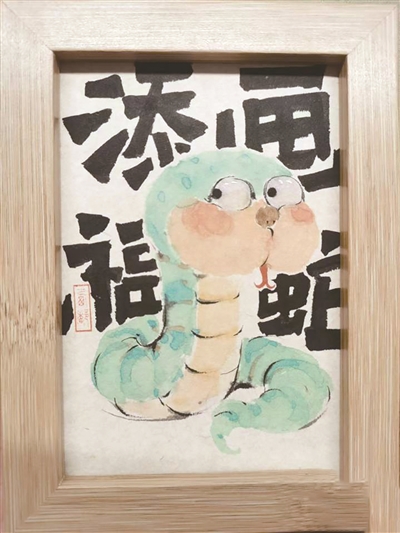 画蛇
添福